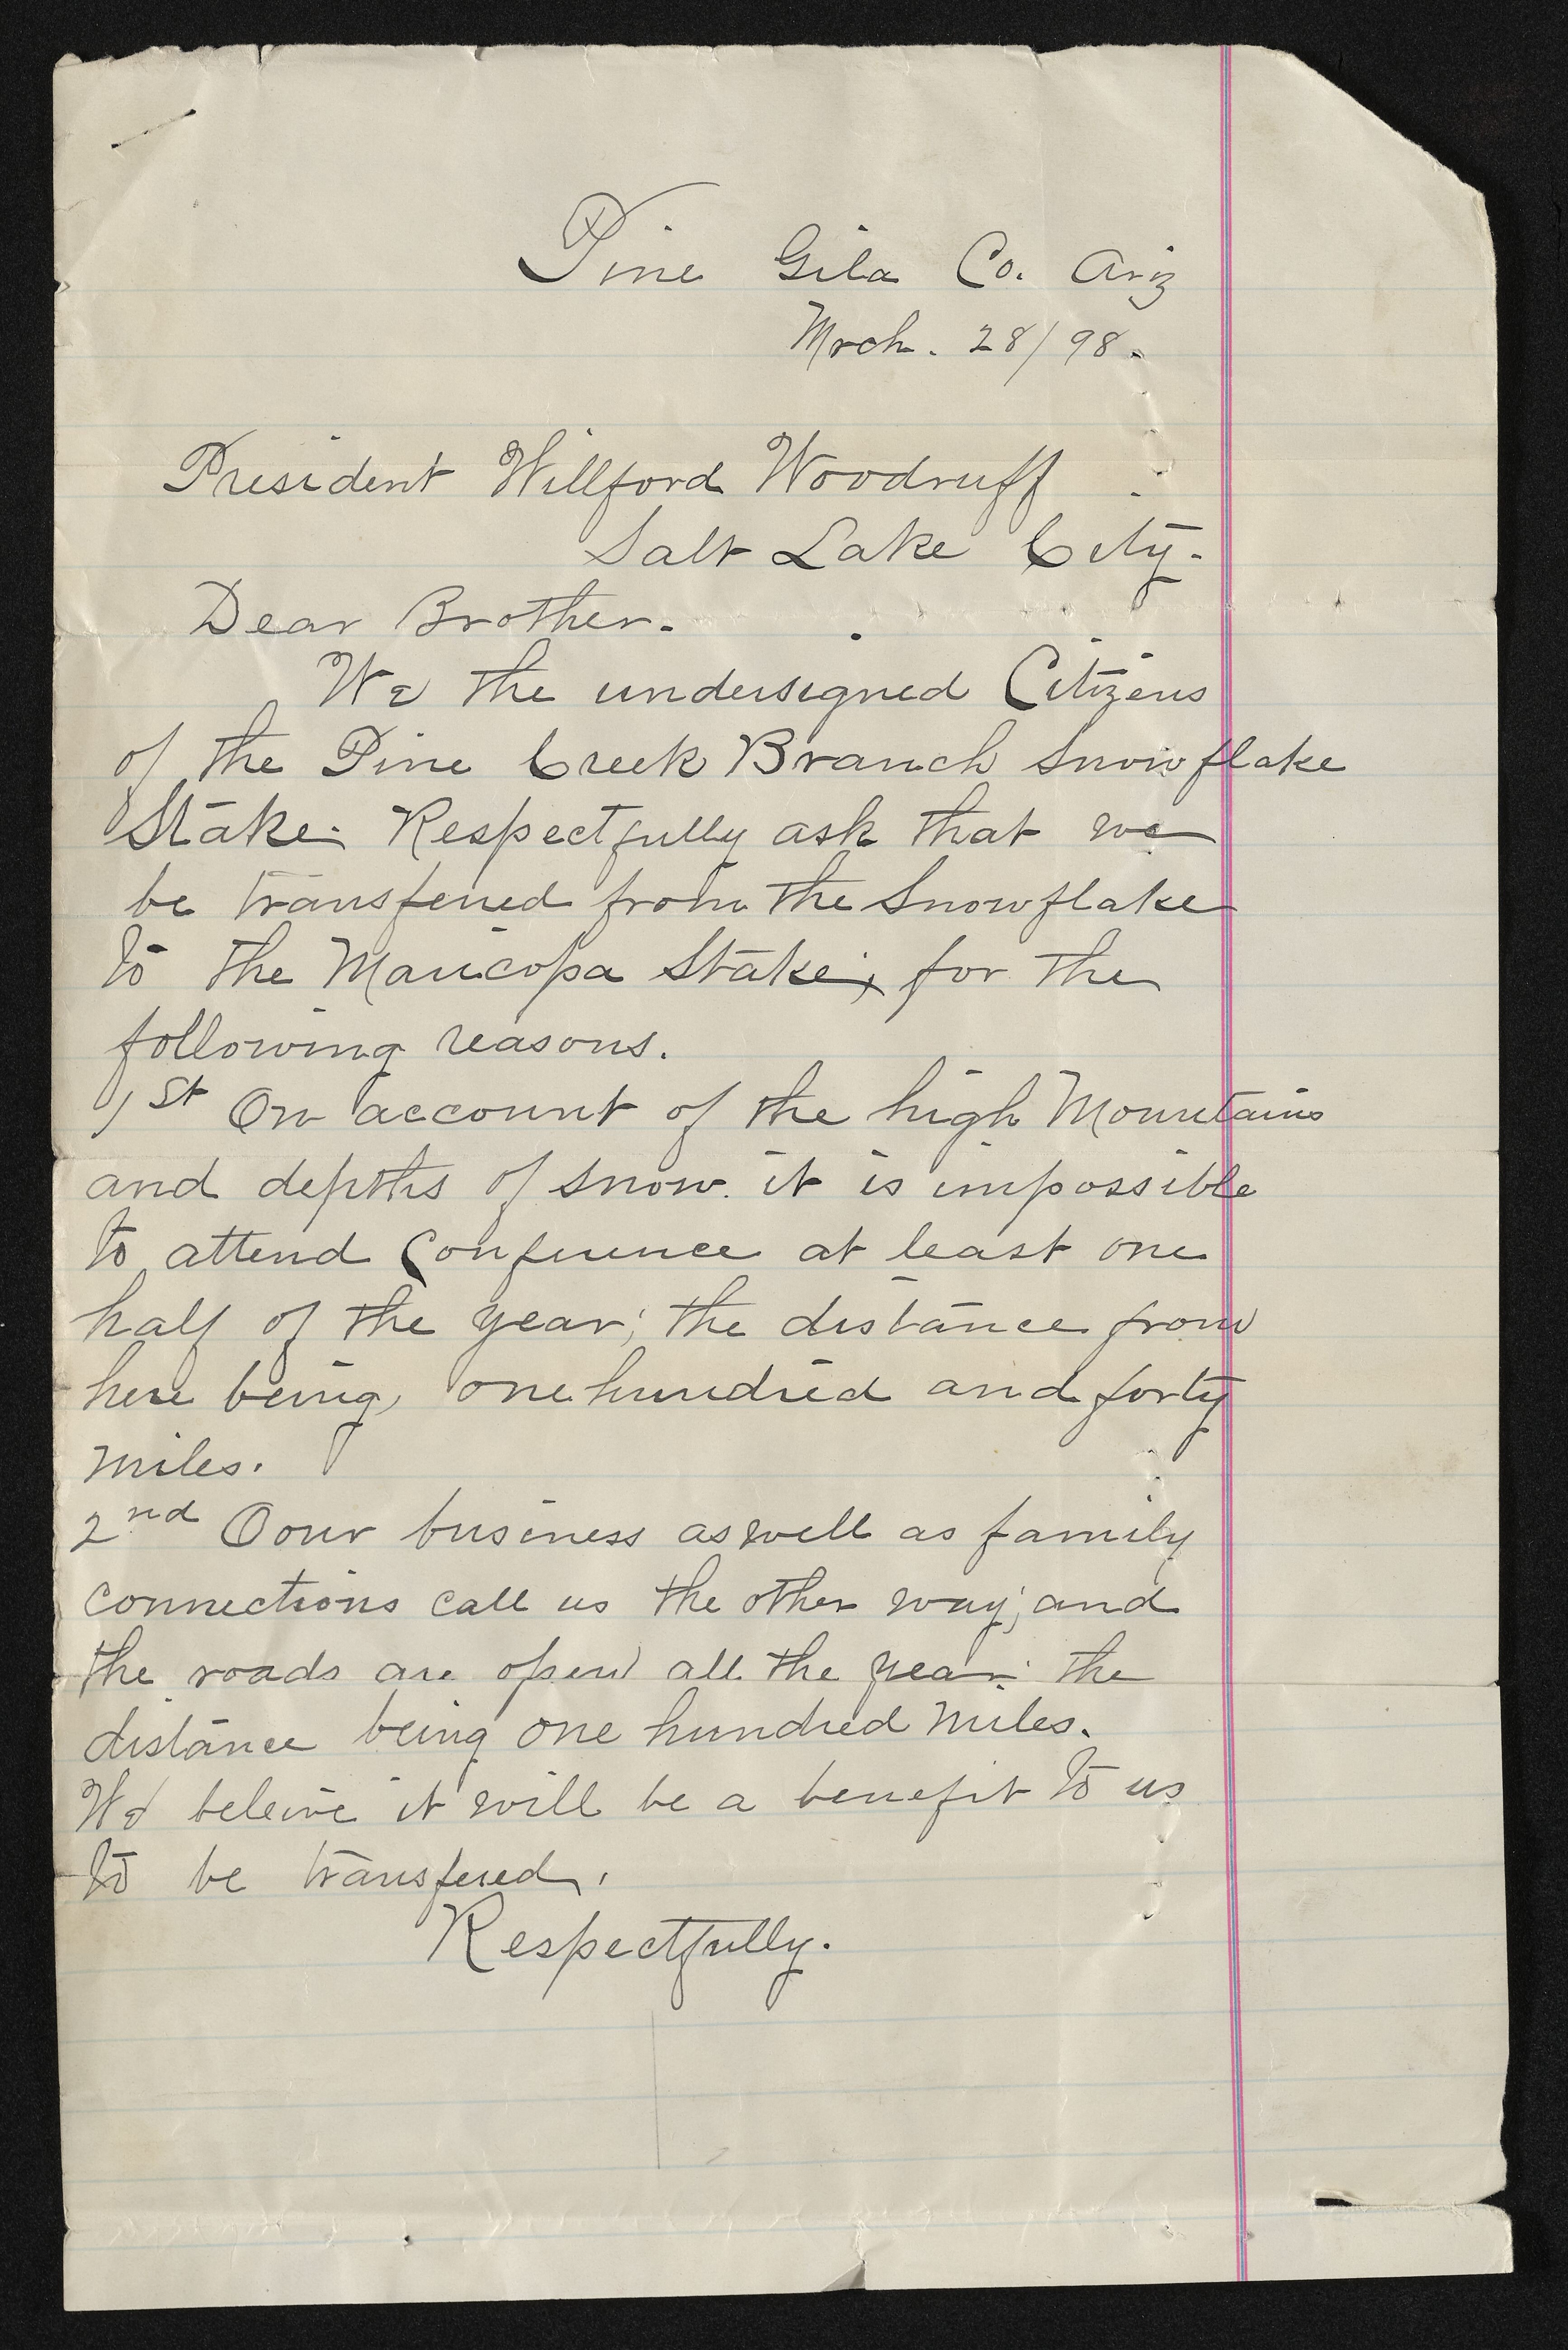 Pine Gila Co. Ariz
Mrch. 28/98.
President Willford Woodruff
Salt Lake City.
Dear Brother.
We the undersigned Citizens
of the Pine Creek Branch Snowflake
Stake. Respectfully ask that we
be transfered from the Snowflake
to the Maricopa Stake; for the
following reasons.
1st On account of the high Mountains
and depths of snow. it is impossible
to attend Conference at least one
half of the year; the distance from
here being, one hundred and forty
miles.
2nd Oour business as well as family
connections call us the other way; and
the roads are open all the year: the
distance being one hundred miles.
We beleive it will be a benefit to us
to be transfered.
Respectfully.